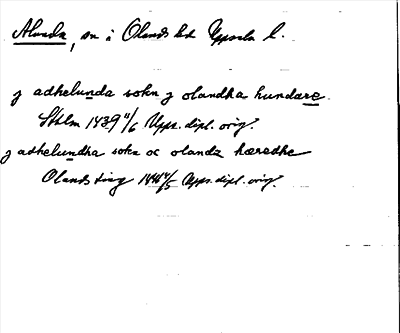 Alunda, sn i Olands hd Uppsala l.
j adhelunda sokn j olandha hundare.
Sthlm 1439 11/6 Upps. dipl. orig.
j adhelundha sokn oc olanda hæredhe
Olands ting 1441 4/5 Upps. dipl. orig.